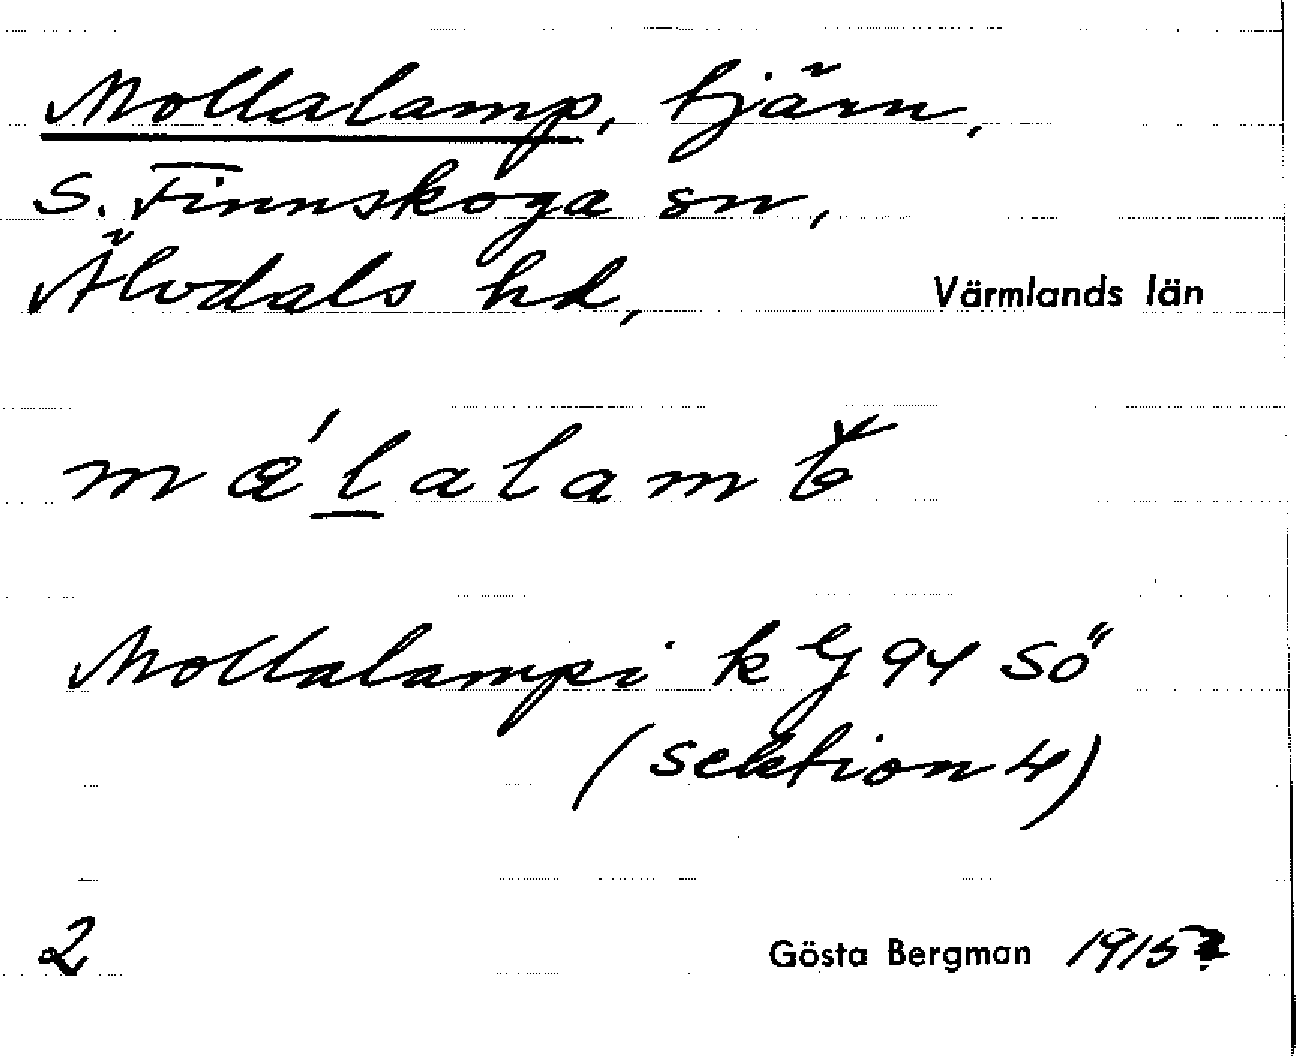 Mollalamp, tjärn,
S. Finnskoga sn,
Älvdals hd, Värmlands län
Mollalampi k G 94 SÖ
(sektion 4)
2 Gösta Bergman 1915?